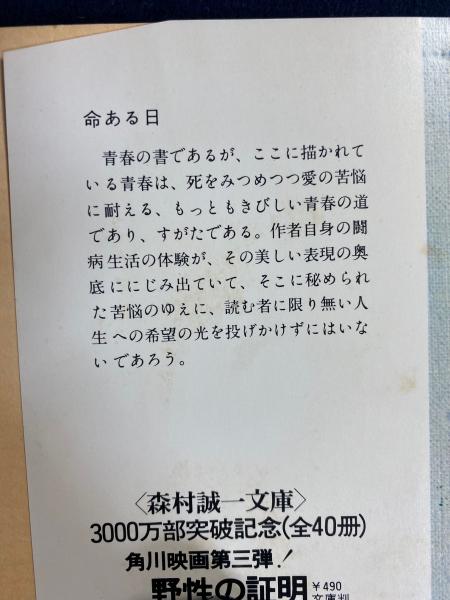 命ある日
青春の書であるが、ここに描かれて
いる青春は、死をみつめつつ愛の苦悩
に耐える、もっともきびしい青春の道
であり、すがたである。作者自身の闘
病生活の体験が、その美しい表現の奥
底ににじみ出ていて、そこに秘められ
た苦悩のゆえに、読む者に限り無い人
生への希望の光を投げかけずにはいな
いであろう。
〈森村誠一文庫〉
3000万部突破記念(全40冊)
角川映画第三弾!
野性の証明 ¥490
文庫判